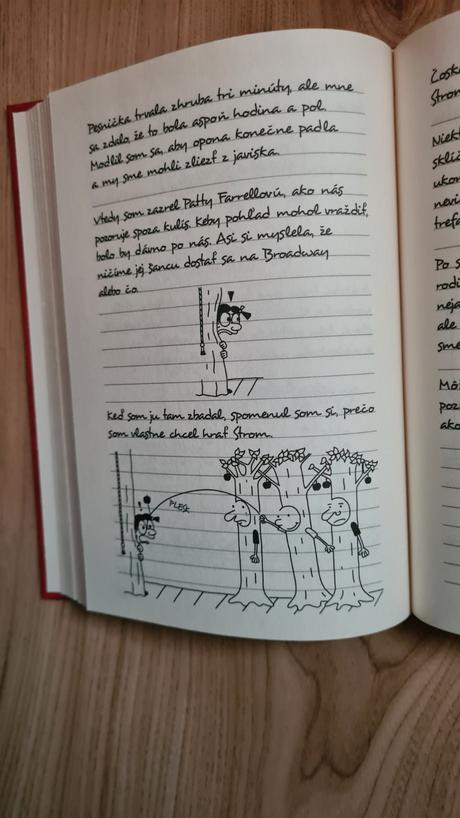 Pesnička trvala zhruba tri minúty, ale mne
sa zdalo, že to bola aspoň hodina a pol.
Modlil som sa, aby opona konečne padla
a my sme mohli zliezť z javiska.
Vtedy som zazrel Patty Farrellovú, ako nás
pozoruje spoza kulís. Keby pohľad mohol vraždiť,
bolo by dávno po nás. Asi si myslela, že
ničíme jej šancu dostať sa na Broadway
alebo čo.
Keď som ju tam zbadal, spomenul som si, prečo
som vlastne chcel hrať Strom.
PLESK
Strom
Niekt
sklíč
ukon
nevi
trefa
Po s
rodi
neja
ale
sme
Môž
poz
ako